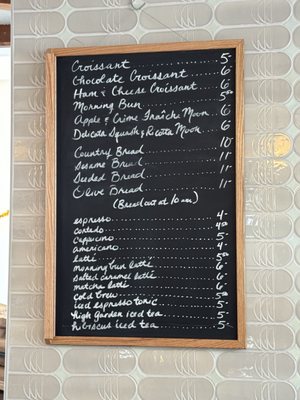 Croissant 5-
Chocolate Croissant 6-
Ham & Cheese Croissant 6-
Morning Bun 5⁵⁰
Apple & Crème Fraîche Moon 6
Delicata Squash & Ricotta Moon 6
Country Bread 10
Sesame Bread 11-
Seeded Bread 11-
Olive Bread 11-
(Bread out at 10 am)
espresso 4-
cortado 4⁵⁰
cappucino 5-
americano 4-
latte 5⁵⁰
morning bun latte 6-
salted caramel latte 6-
matcha latte 6-
cold brew 5⁵⁰
iced espresso tonic 5-
high garden iced tea 5-
hibiscus iced tea 5-